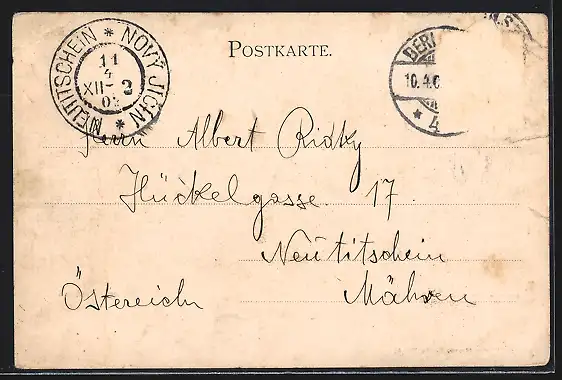 NEUTITSCHEIN * NOVÝ JIČÍN *
11
4
XII- 2
POSTKARTE.
BER
10.4.0
* 4
Herrn Albert Ridky
Hückelgasse 17
Neutitschein
Östereich Mähren